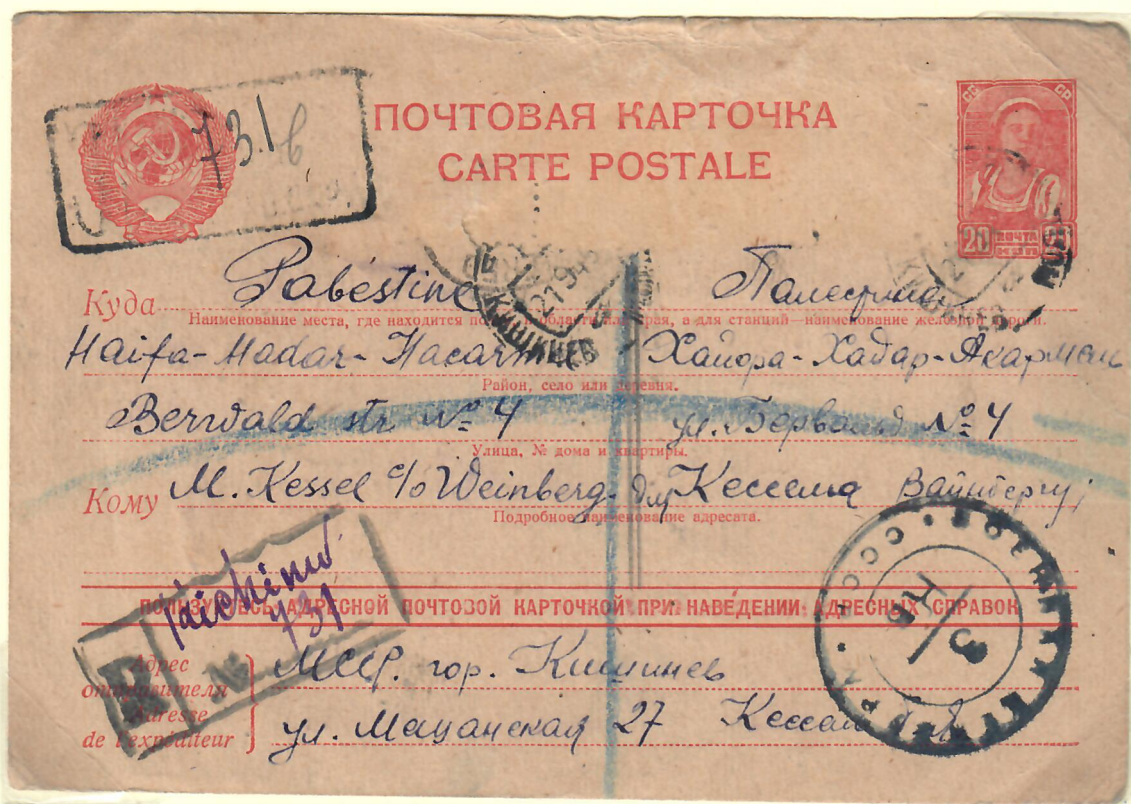 7311в
ПОЧТОВАЯ КАРТОЧКА
CARTE POSTALE
СС СР
20 ПОЧТА КОП 20
Куда Pabestine Палестина
Наименование места, где находится области края, а для станций—наименование железной дороги.
Haifa-Hadar- Хайфа-Хадар-Акармел
Район, село или деревня.
Berwald str № 4 ул. Бервальд № 4
Улица, № дома и квартиры.
Кому M. Kessel c/o Weinberg. для Кесселя Вайнбергу
Подробное наименование адресата.
КИШИНЕВ
КИШИНЕВ
731
ПОЛЬЗУЙТЕСЬ АДРЕСНОЙ ПОЧТОВОЙ КАРТОЧКОЙ ПРИ НАВЕДЕНИИ АДРЕСНЫХ СПРАВОК
R №
Адрес отправителя
Adresse de l'expéditeur
МССР. гор. Кишинев
ул. Мацанская 27